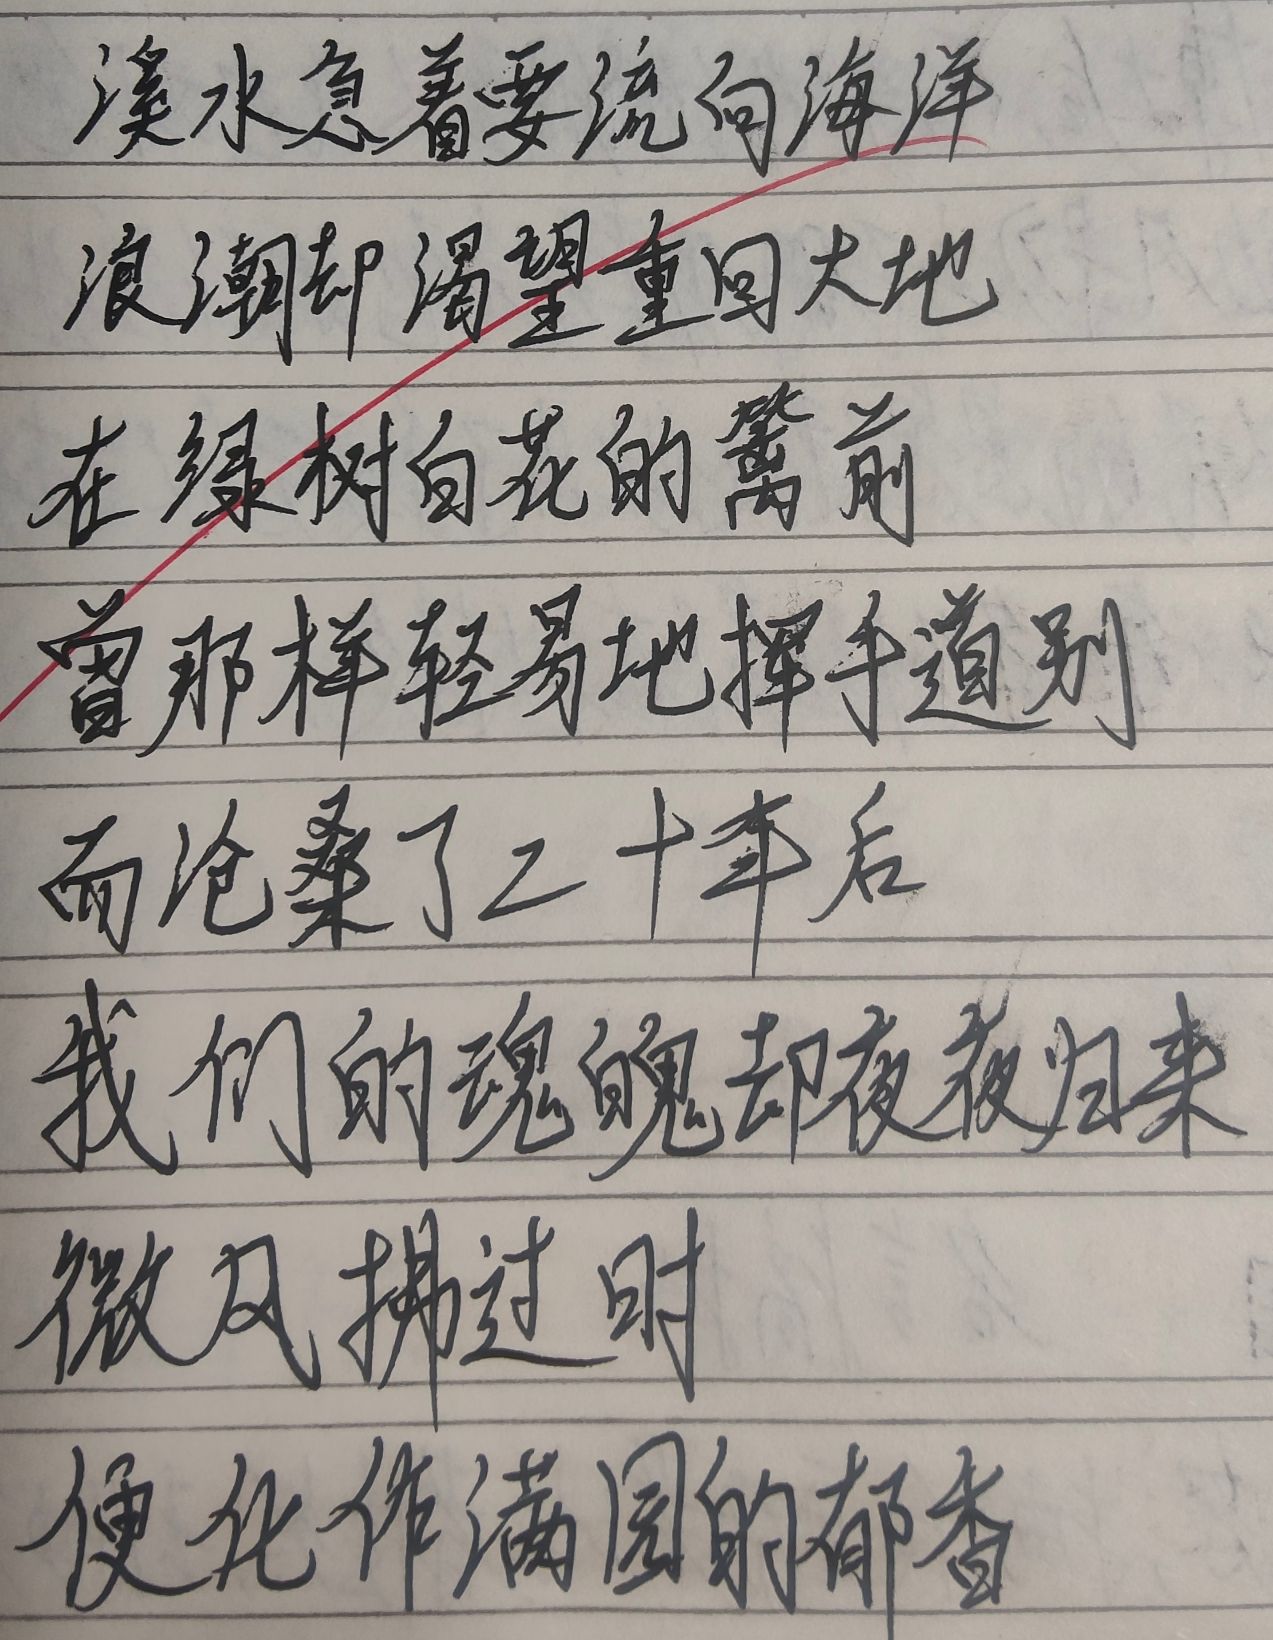 溪水急着要流向海洋
浪潮却渴望重回大地
在绿树白花的篱前
曾那样轻易地挥手道别
而沧桑了二十年后
我们的魂魄却夜夜归来
微风拂过时
便化作满园的郁香